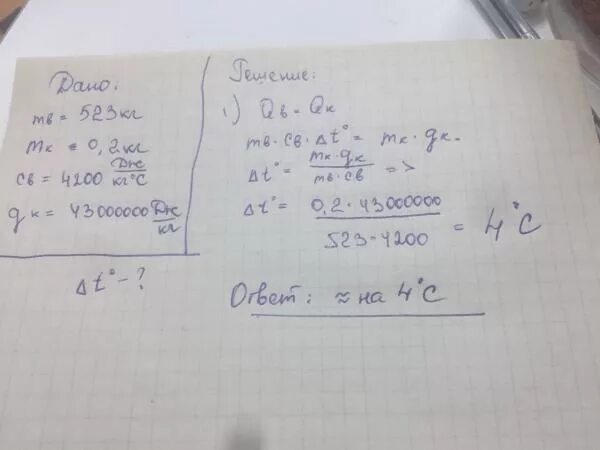 Дано:
mв = 523 кг
mк = 0,2 кг
cв = 4200 Дж/кг°C
qк = 43000000 Дж/кг
Δt° - ?
Решение:
1) Qв = Qк
mв · cв · Δt° = mк · qк.
Δt° = mк · qк / mв · cв =>
Δt° = 0,2 · 43000000 / 523 · 4200 = 4°C
Ответ: ≈ на 4°C